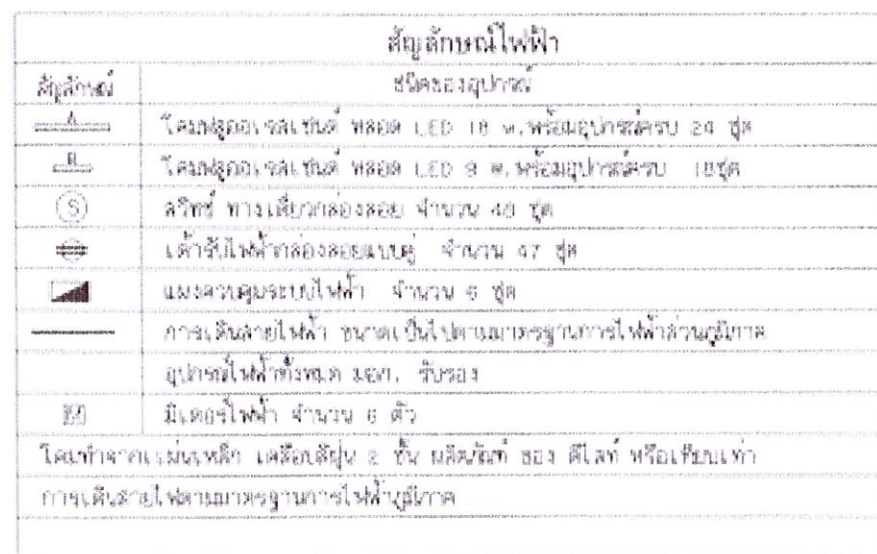 สัญลักษณ์ไฟฟ้า
สัญลักษณ์ ชนิดของอุปกรณ์
A โคมฟลูออเรสเซนต์ หลอด LED 18 w.พร้อมอุปกรณ์ครบ 24 ชุด
B โคมฟลูออเรสเซนต์ หลอด LED 9 w.พร้อมอุปกรณ์ครบ 18ชุด
S สวิทซ์ ทางเดียวกล่องลอย จำนวน 40 ชุด
เต้ารับไฟฟ้ากล่องลอยแบบคู่ จำนวน 47 ชุด
แผงควบคุมระบบไฟฟ้า จำนวน 6 ชุด
การเดินสายไฟฟ้า ขนาดเป็นไปตามมาตรฐานการไฟฟ้าส่วนภูมิภาค
อุปกรณ์ไฟฟ้าทั้งหมด มอก. รับรอง
M มิเตอร์ไฟฟ้า จำนวน 6 ตัว
โคมทำจากแผ่นเหล็ก เคลือบสีฝุ่น 2 ชั้น ผลิตภัณฑ์ ของ ดีไลท์ หรือเทียบเท่า
การเดินสายไฟตามมาตรฐานการไฟฟ้าภูมิภาค